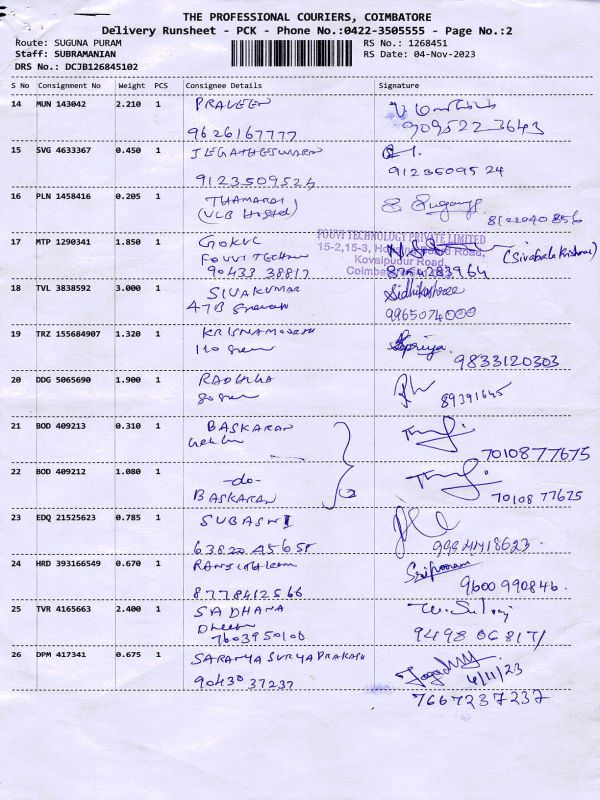 THE PROFESSIONAL COURIERS, COIMBATORE
Delivery Runsheet - PCK - Phone No.:0422-3505555 - Page No.:2
Route: SUGUNA PURAM RS No.: 1268451
Staff: SUBRAMANIAN RS Date: 04-Nov-2023
DRS No.: DCJB126845102
S No Consignment No Weight PCS Consignee Details Signature
14 MUN 143042 2.210 1 PRAVEEN
9626167777 9095223643
15 SVG 4633367 0.450 1 JEGATHESWARN
9123509524 9123509524
16 PLN 1458416 0.205 1 THAMARAI
(VLB Hostel) 8122040856
17 MTP 1290341 1.850 1 GOKUL
FOUVI TECHNOLOGY PRIVATE LIMITED
FOUVI TECHNO 15-2,15-3, Road,
Kovaipudur Road, (Sivabalakrishnan)
90433 38817 Coimbatore 8754283964
18 TVL 3838592 3.000 1 SIVAKUMAR Sidhikshree
47B 9965074000
19 TRZ 155684907 1.320 1 KRISNAMOORTH Supriya
110 9833120303
20 DDG 5065690 1.900 1 RADHIKA
80 89391645
21 BOD 409213 0.310 1 BASKARAN
7010877675
22 BOD 409212 1.080 1 -do-
BASKARAN 70108 77675
23 EDQ 21525623 0.785 1 SUBASHI
63820 45658
24 HRD 393166549 0.670 1 Sripoorani
8778412566 9600 990846.
25 TVR 4165663 2.400 1 SADHANA
7603950100 9498 06817
26 DPM 417341 0.675 1 SARANYA SURYA PRAKASH
90430 37237 4/11/23
7667237237